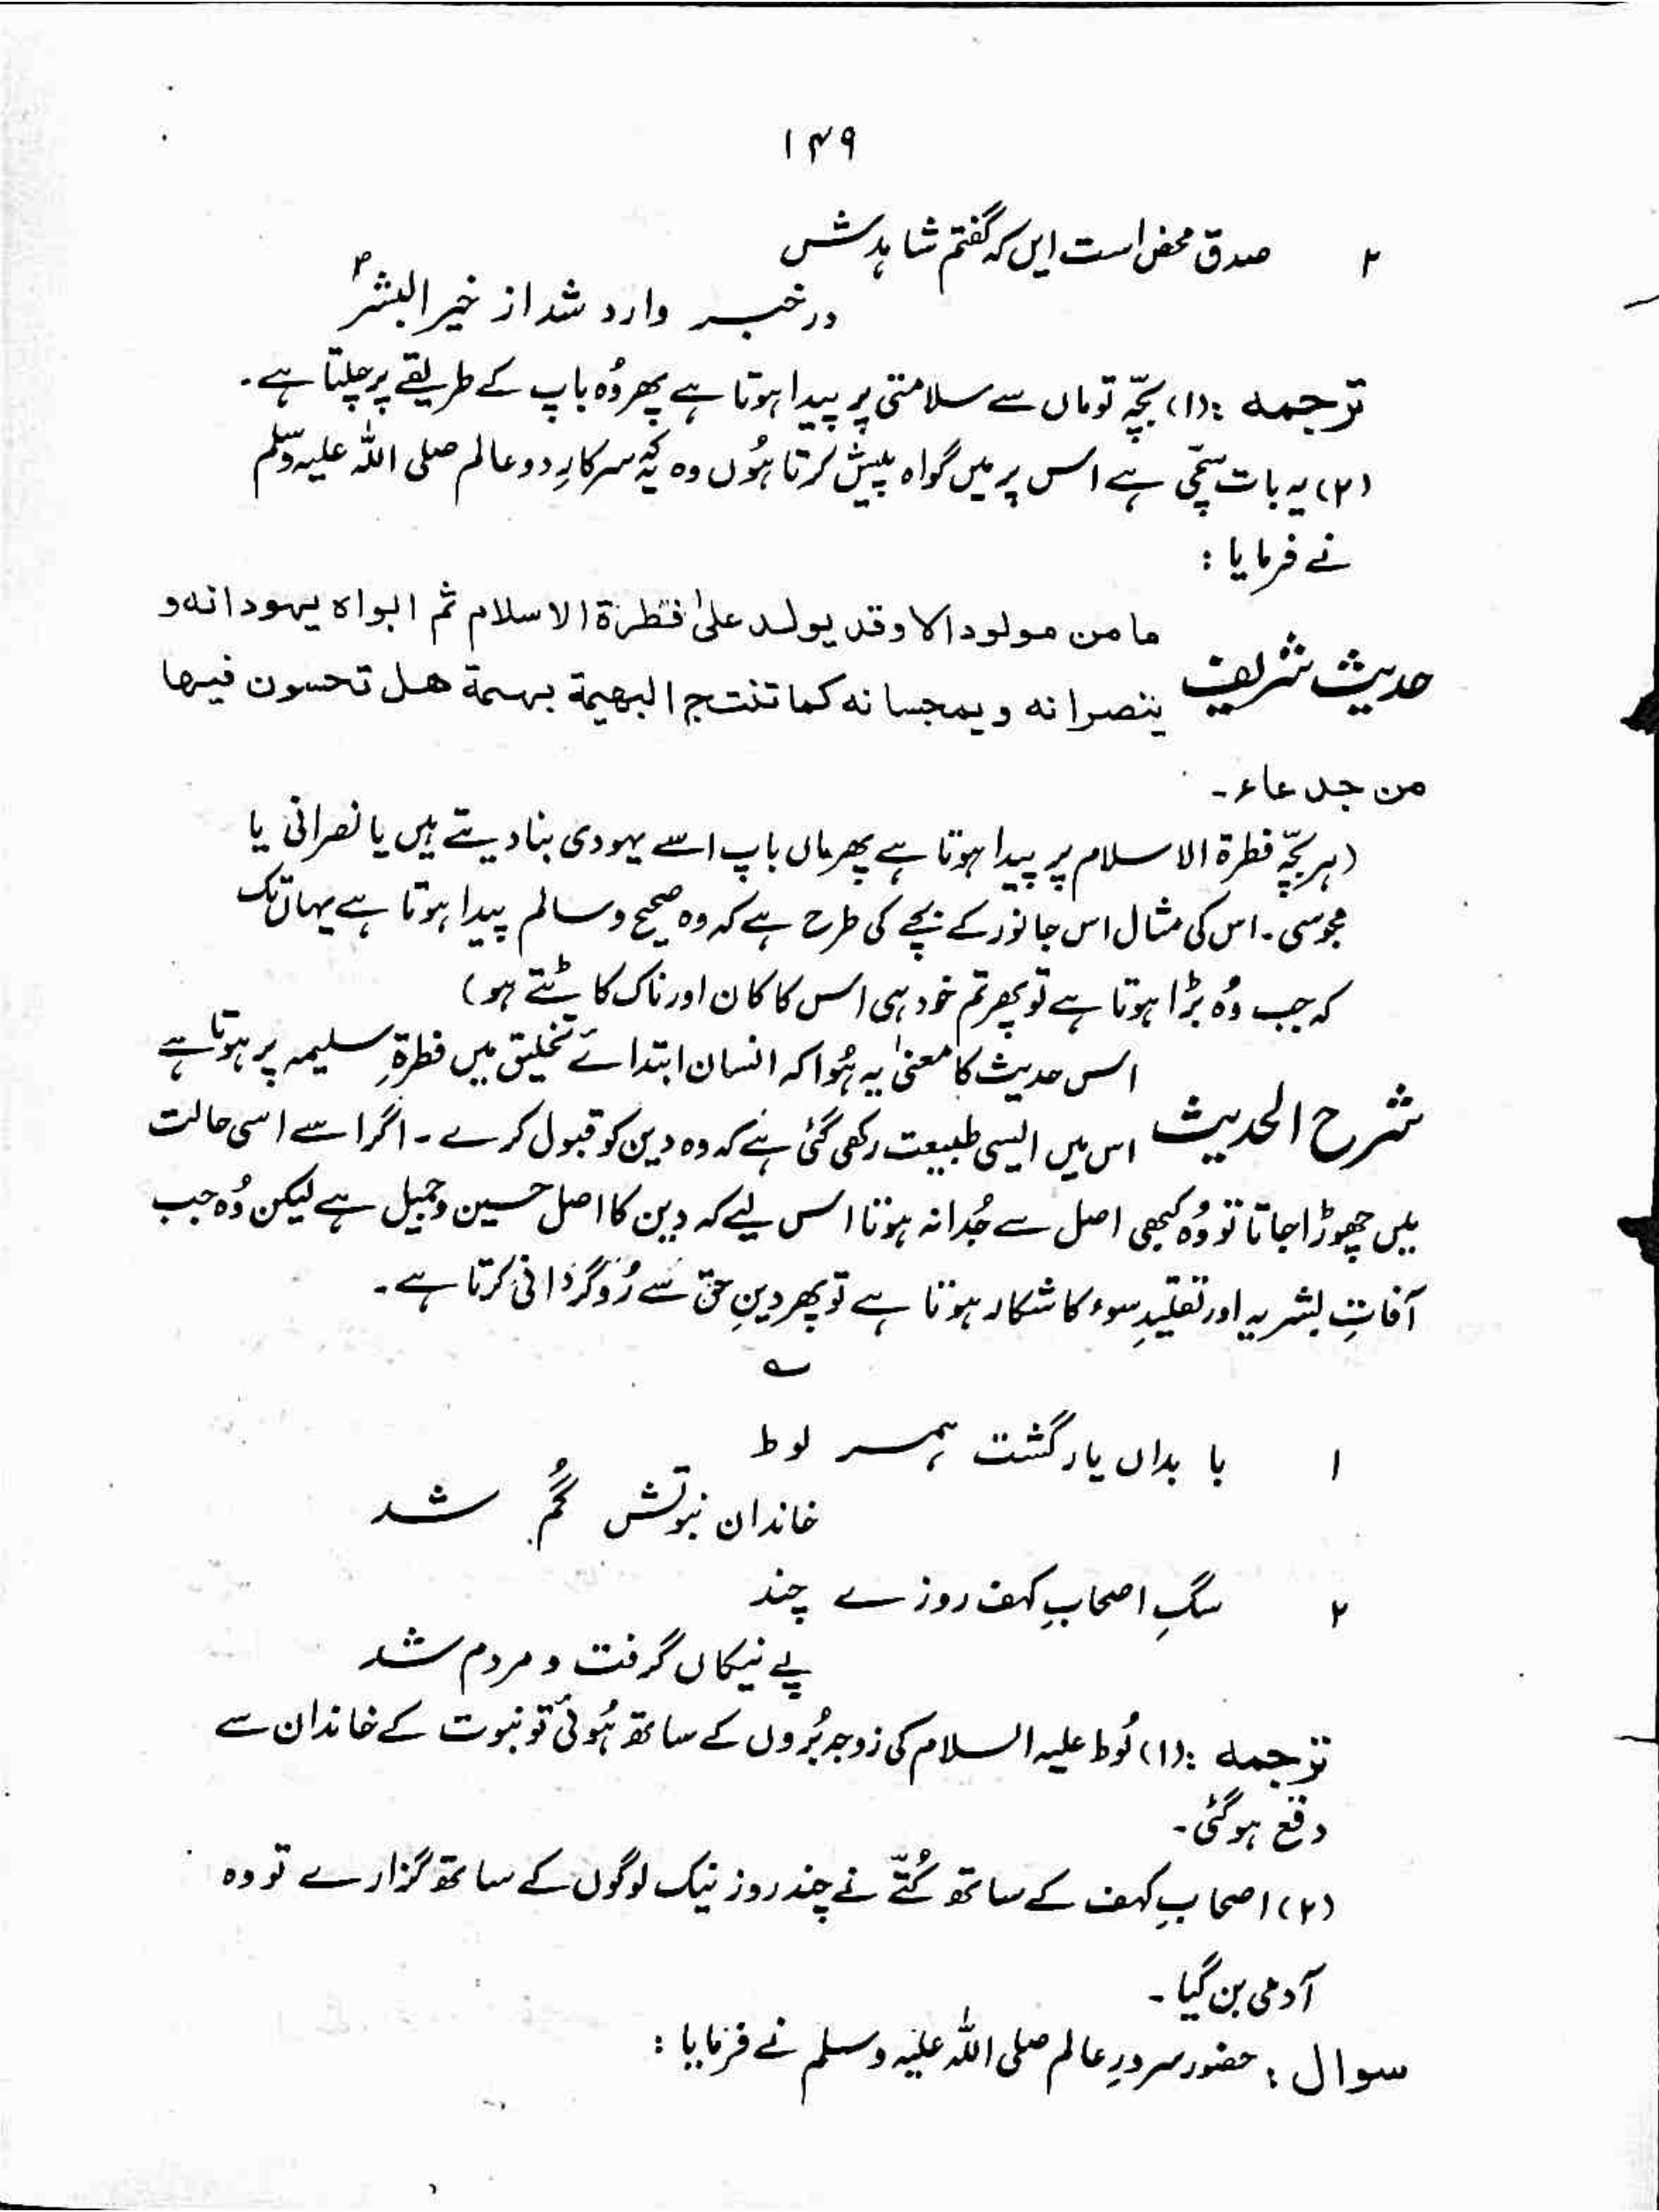 ۱۴۹
۲ صدق محض است ایں کہ گفتم شاہدش
در خبر وارد شد از خیر البشرؐ
ترجمہ : (۱) بچّہ تو ماں سے سلامتی پر پیدا ہوتا ہے پھر وُہ باپ کے طریقے پر چلتا ہے۔
(۲) یہ بات سچّی ہے اس پر میں گواہ پیش کرتا ہُوں وہ یہ کہ سرکارِ دو عالم صلی اللہ علیہ وسلّم
نے فرمایا :
ما من مولود الا وقد یولد علیٰ فطرۃ الاسلام ثم ابواہ یہودانہ و
حدیث شریف ینصرانہ و یمجسانہ کما تنتج البھیمۃ بہیمۃ ھل تحسون فیہا
من جدعاء۔
(ہر بچّہ فطرۃ الاسلام پر پیدا ہوتا ہے پھر ماں باپ اسے یہودی بنا دیتے ہیں یا نصرانی یا
مجوسی۔ اس کی مثال اس جانور کے بچے کی طرح ہے کہ وہ صحیح و سالم پیدا ہوتا ہے یہاں تک
کہ جب وُہ بڑا ہوتا ہے تو پھر تم خود ہی اس کا کان اور ناک کاٹتے ہو)
اس حدیث کا معنیٰ یہ ہُوا کہ انسان ابتدائے تخلیق میں فطرۃِ سلیمہ پر ہوتا ہے
شرح الحدیث اس میں ایسی طبیعت رکھی گئی ہے کہ وہ دین کو قبول کرے۔ اگر اسے اسی حالت
میں چھوڑا جاتا تو وُہ کبھی اصل سے جُدا نہ ہوتا اس لیے کہ دین کا اصل حسین و جمیل ہے لیکن وُہ جب
آفاتِ بشریہ اور تقلیدِ سوء کا شکار ہوتا ہے تو پھر دینِ حق سے رُوگردانی کرتا ہے۔
؎
۱ با بداں یار گشت ہمسر لوط
خاندان نبوتش گُم شد
۲ سگِ اصحابِ کہف روزے چند
پے نیکاں گرفت و مردم شد
ترجمہ : (۱) لُوط علیہ السلام کی زوجہ بُروں کے ساتھ ہُوئی تو نبوت کے خاندان سے
دفع ہو گئی۔
(۲) اصحابِ کہف کے ساتھ کُتّے نے چند روز نیک لوگوں کے ساتھ گزارے تو وہ
آدمی بن گیا۔
سوال : حضور سرورِ عالم صلی اللہ علیہ وسلم نے فرمایا :